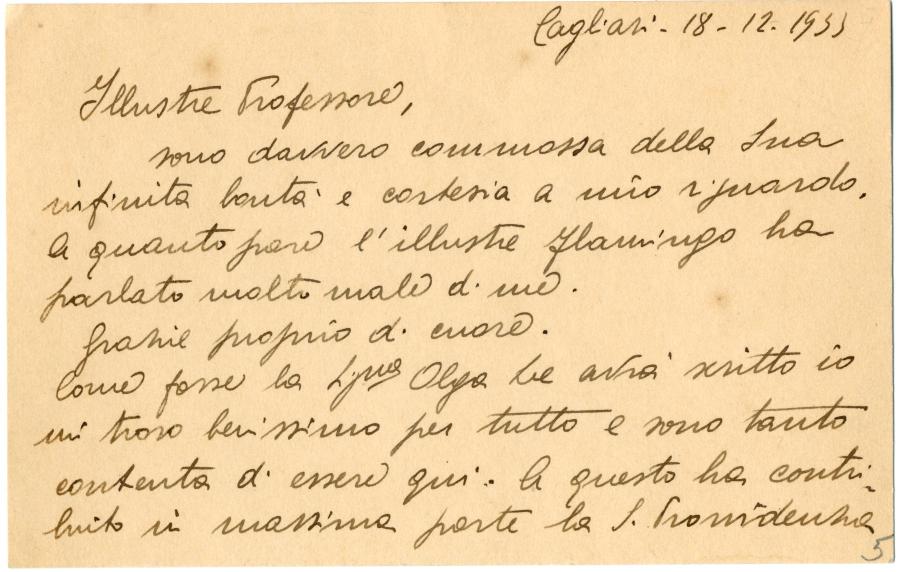 Cagliari - 18 - 12 - 1933
Illustre Professore,
sono davvero commossa della Sua
infinita bontà e cortesia a mio riguardo.
A quanto pare l'illustre Flamingo ha
parlato molto male di me.
Grazie proprio di cuore.
Come forse la Sig.na Olga Le avrà scritto io
mi trovo benissimo per tutto e sono tanto
contenta di essere qui. A questo ha contri-
buito in massima parte la S. Provvidenza
5